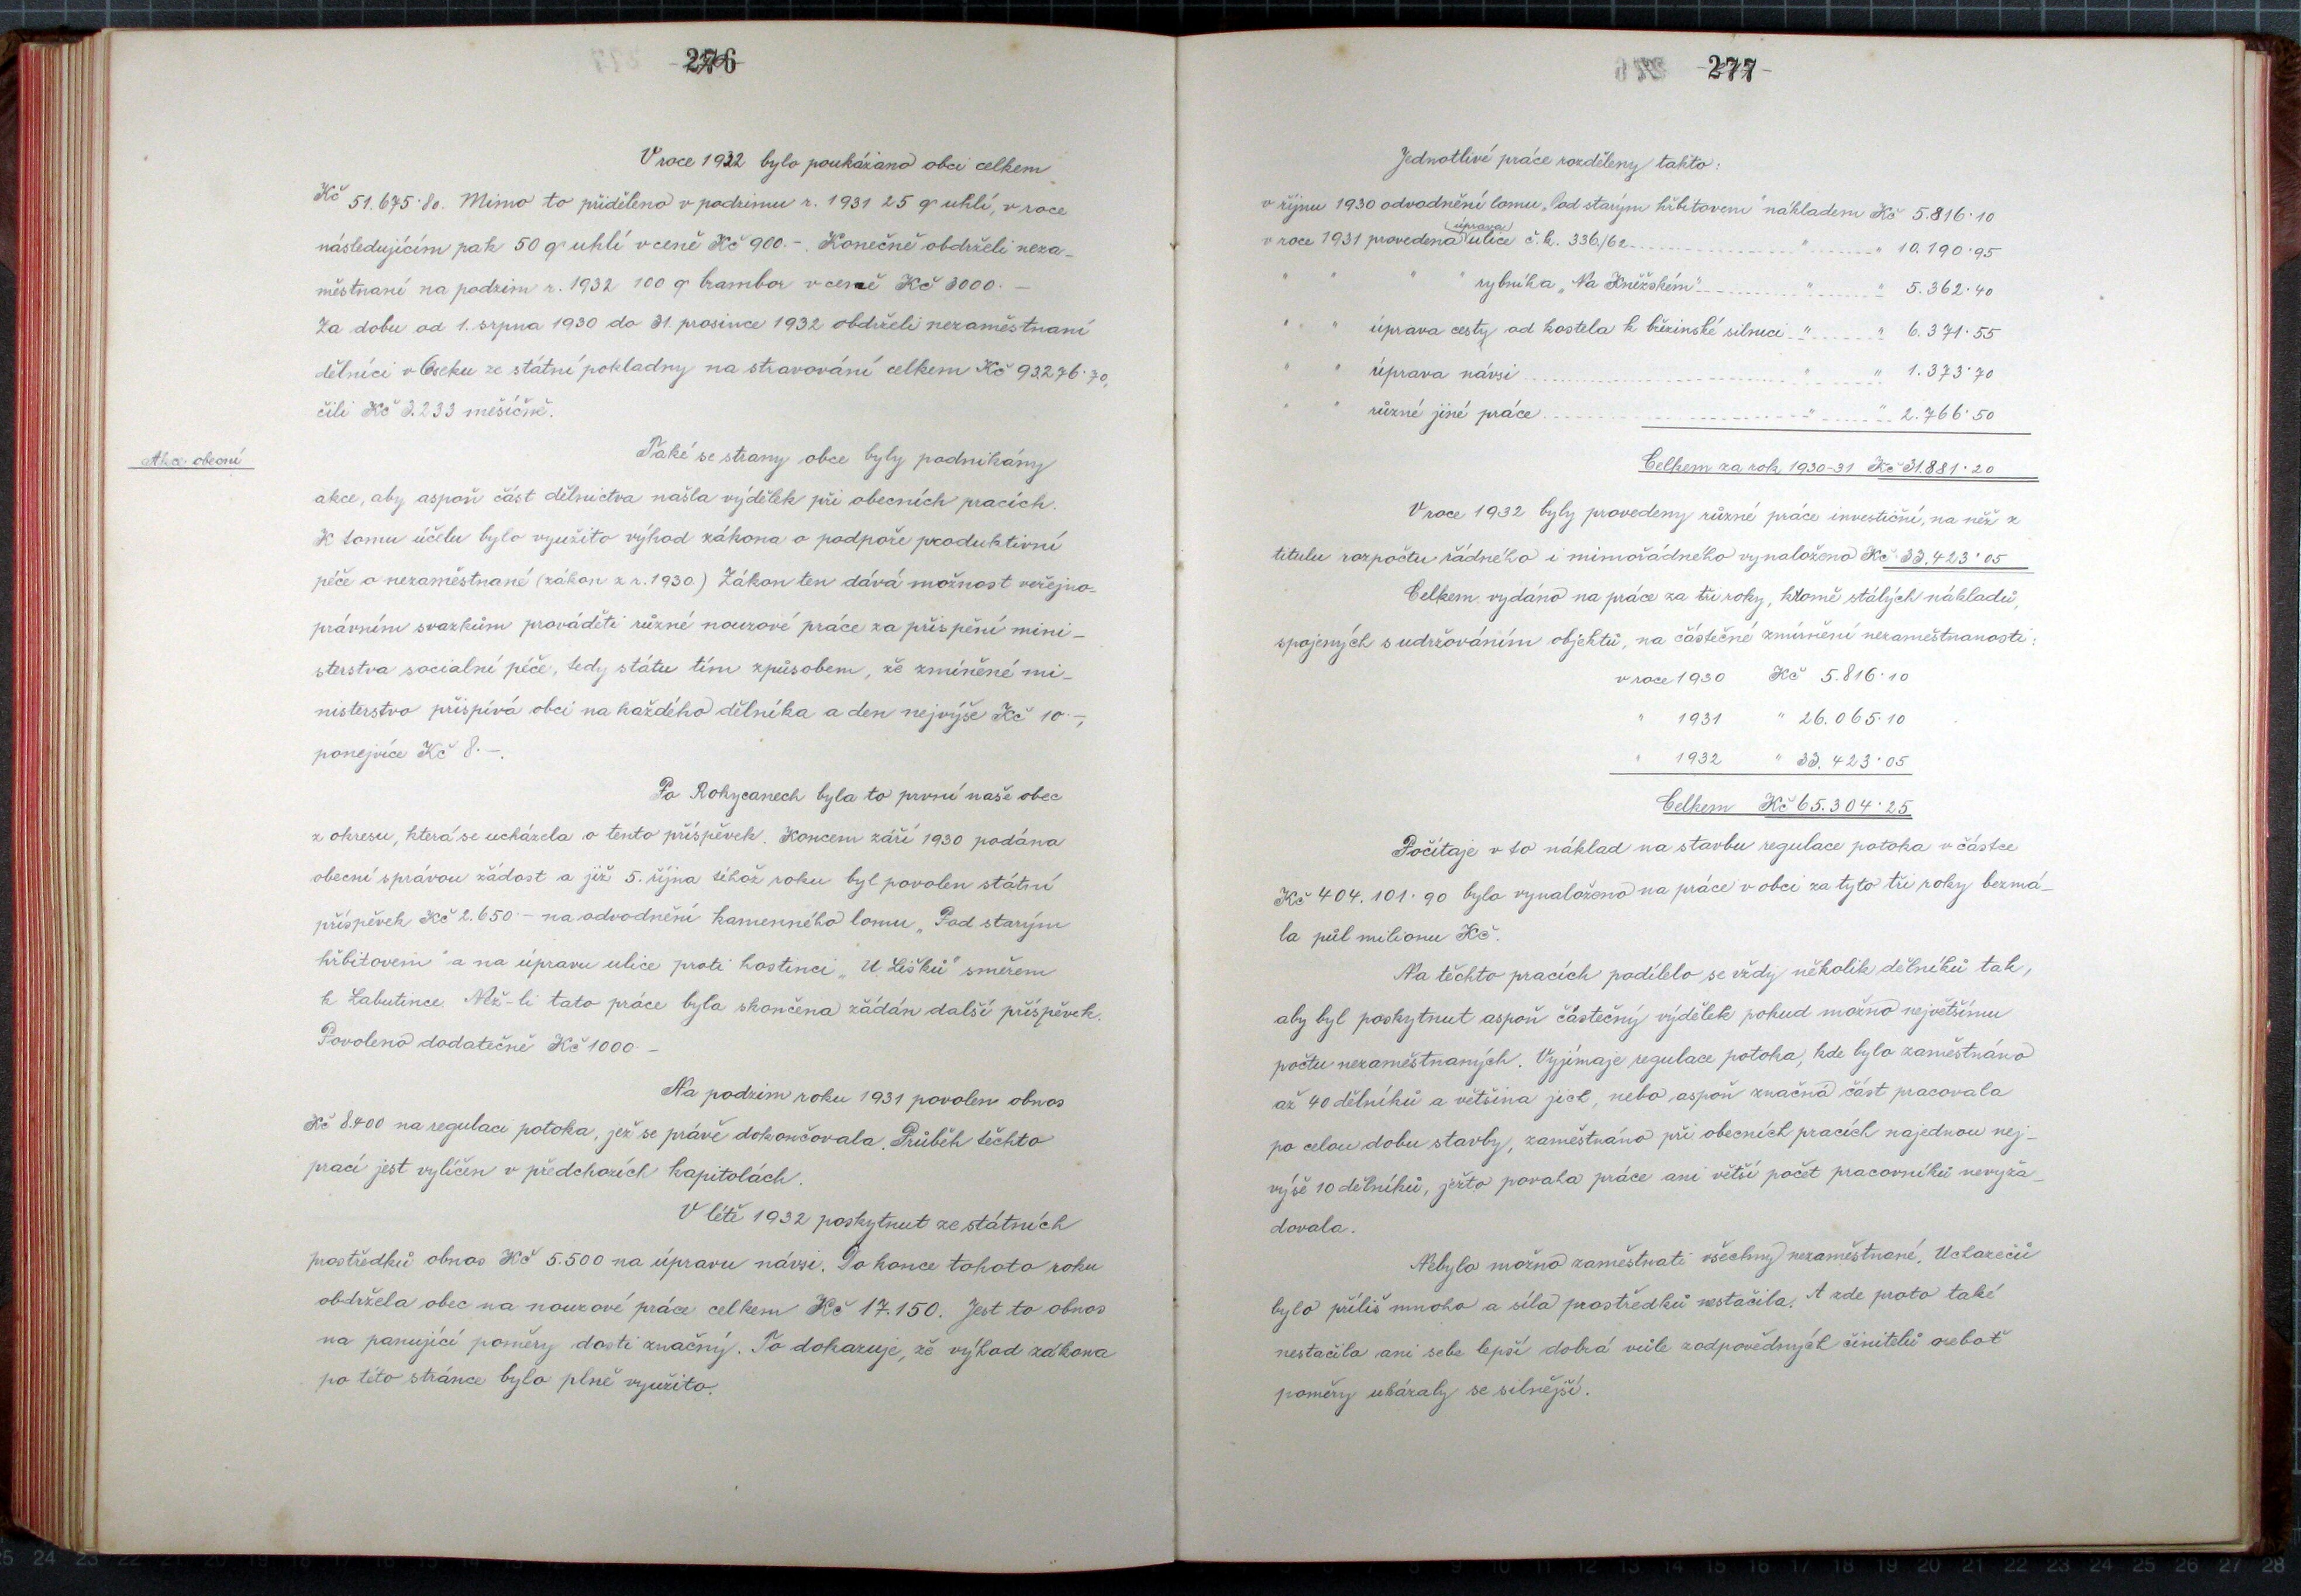 -276-
V roce 1932 bylo poukázano obci celkem
Kč 51.675·80. Mimo to přiděleno v podzimu r. 1931 25 q uhlí, v roce
následujícím pak 50 q uhlí v ceně Kč 900.-. Konečně obdrželi neza-
městnaní na podzim r. 1932 100 q brambor v ceně Kč 3000·-
Za dobu od 1. srpna 1930 do 31. prosince 1932 obdrželi nezaměstnaní
dělníci v Oseku ze státní pokladny na stravování celkem Kč 93.276·70,
čili Kč 3.233 měsíčně.
Akce obecní
Také se strany obce byly podnikány
akce, aby aspoň část dělnictva našla výdělek při obecních pracích.
K tomu účelu bylo využito výhod zákona o podpoře produktivní
péče o nezaměstnané (zákon z r. 1930.) Zákon ten dává možnost veřejno-
právním svazkům prováděti různé nouzové práce za přispění mini-
sterstva socialní péče, tedy státu tím způsobem, že zmíněné mi-
nisterstvo přispívá obci na každého dělníka a den nejvýše Kč 10·-,
ponejvíce Kč 8.-.
Po Rokycanech byla to první naše obec
z okresu, která se ucházela o tento příspěvek. Koncem září 1930 podána
obecní správou žádost a již 5. října téhož roku byl povolen státní
příspěvek Kč 2.650·- na odvodnění kamenného lomu „Pod starým
hřbitovem" a na úpravu ulice proti hostinci „U Lišků" směrem
k Labutince. Než-li tato práce byla skončena žádán další příspěvek.
Povoleno dodatečně Kč 1000·-
Na podzim roku 1931 povolen obnos
Kč 8.400 na regulaci potoka, jež se právě dokončovala. Průběh těchto
prací jest vylíčen v předchozích kapitolách.
V létě 1932 poskytnut ze státních
prostředků obnos Kč 5.500 na úpravu návsi. Do konce tohoto roku
obdržela obec na nouzové práce celkem Kč 17.150. Jest to obnos
na panující poměry dosti značný. To dokazuje, že výhod zákona
po této stránce bylo plně využito.
-277-
Jednotlivé práce rozděleny takto:
v říjnu 1930 odvodnění lomu „Pod starým hřbitovem" nákladem Kč 5.816·10
úprava
v roce 1931 provedena ulice č.k. 336/62 " " 10.190·95
" " " " rybníka „Na Kněžském" " " 5.362·40
" " úprava cesty od kostela k březinské silnici " " 6.371·55
" " úprava návsi " " 1.373·70
" " různé jiné práce " " 2.766·50
Celkem za rok 1930-31 Kč 31.881·20
V roce 1932 byly provedeny různé práce investiční, na něž z
titulu rozpočtu řádného i mimořádného vynaloženo Kč 33.423·05
Celkem vydáno na práce za tři roky, kromě stálých nákladů,
spojených s udržováním objektů, na částečné zmírnění nezaměstnanosti:
v roce 1930 Kč 5.816·10
" 1931 " 26.065·10
" 1932 " 33.423·05
Celkem Kč 65.304·25
Počítaje v to náklad na stavbu regulace potoka v částce
Kč 404.101·90 bylo vynaloženo na práce v obci za tyto tři roky bezmá-
la půl milionu Kč.
Na těchto pracích podílelo se vždy několik dělníků tak,
aby byl poskytnut aspoň částečný výdělek pokud možno největšímu
počtu nezaměstnaných. Vyjímaje regulace potoka, kde bylo zaměstnáno
až 40 dělníků a většina jich, nebo aspoň značná část pracovala
po celou dobu stavby, zaměstnáno při obecních pracích najednou nej-
výše 10 dělníků, ježto povaha práce ani větší počet pracovníků nevyža-
dovala.
Nebylo možno zaměstnati všechny nezaměstnané. Uchazečů
bylo příliš mnoho a síla prostředků nestačila. A zde proto také
nestačila ani sebe lepší dobrá vůle zodpovědných činitelů neboť
poměry ukázaly se silnější.